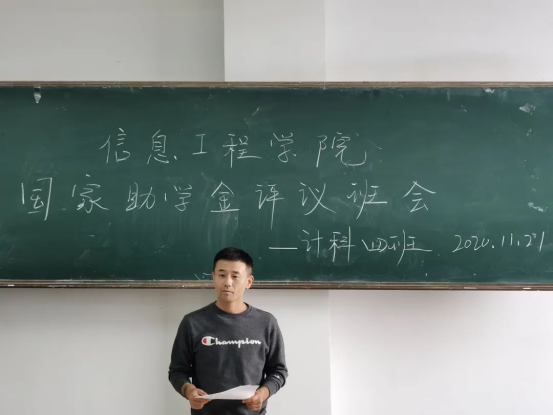 信息工程学院
国家助学金评议班会
—计科四班 2020.11.27
Champion